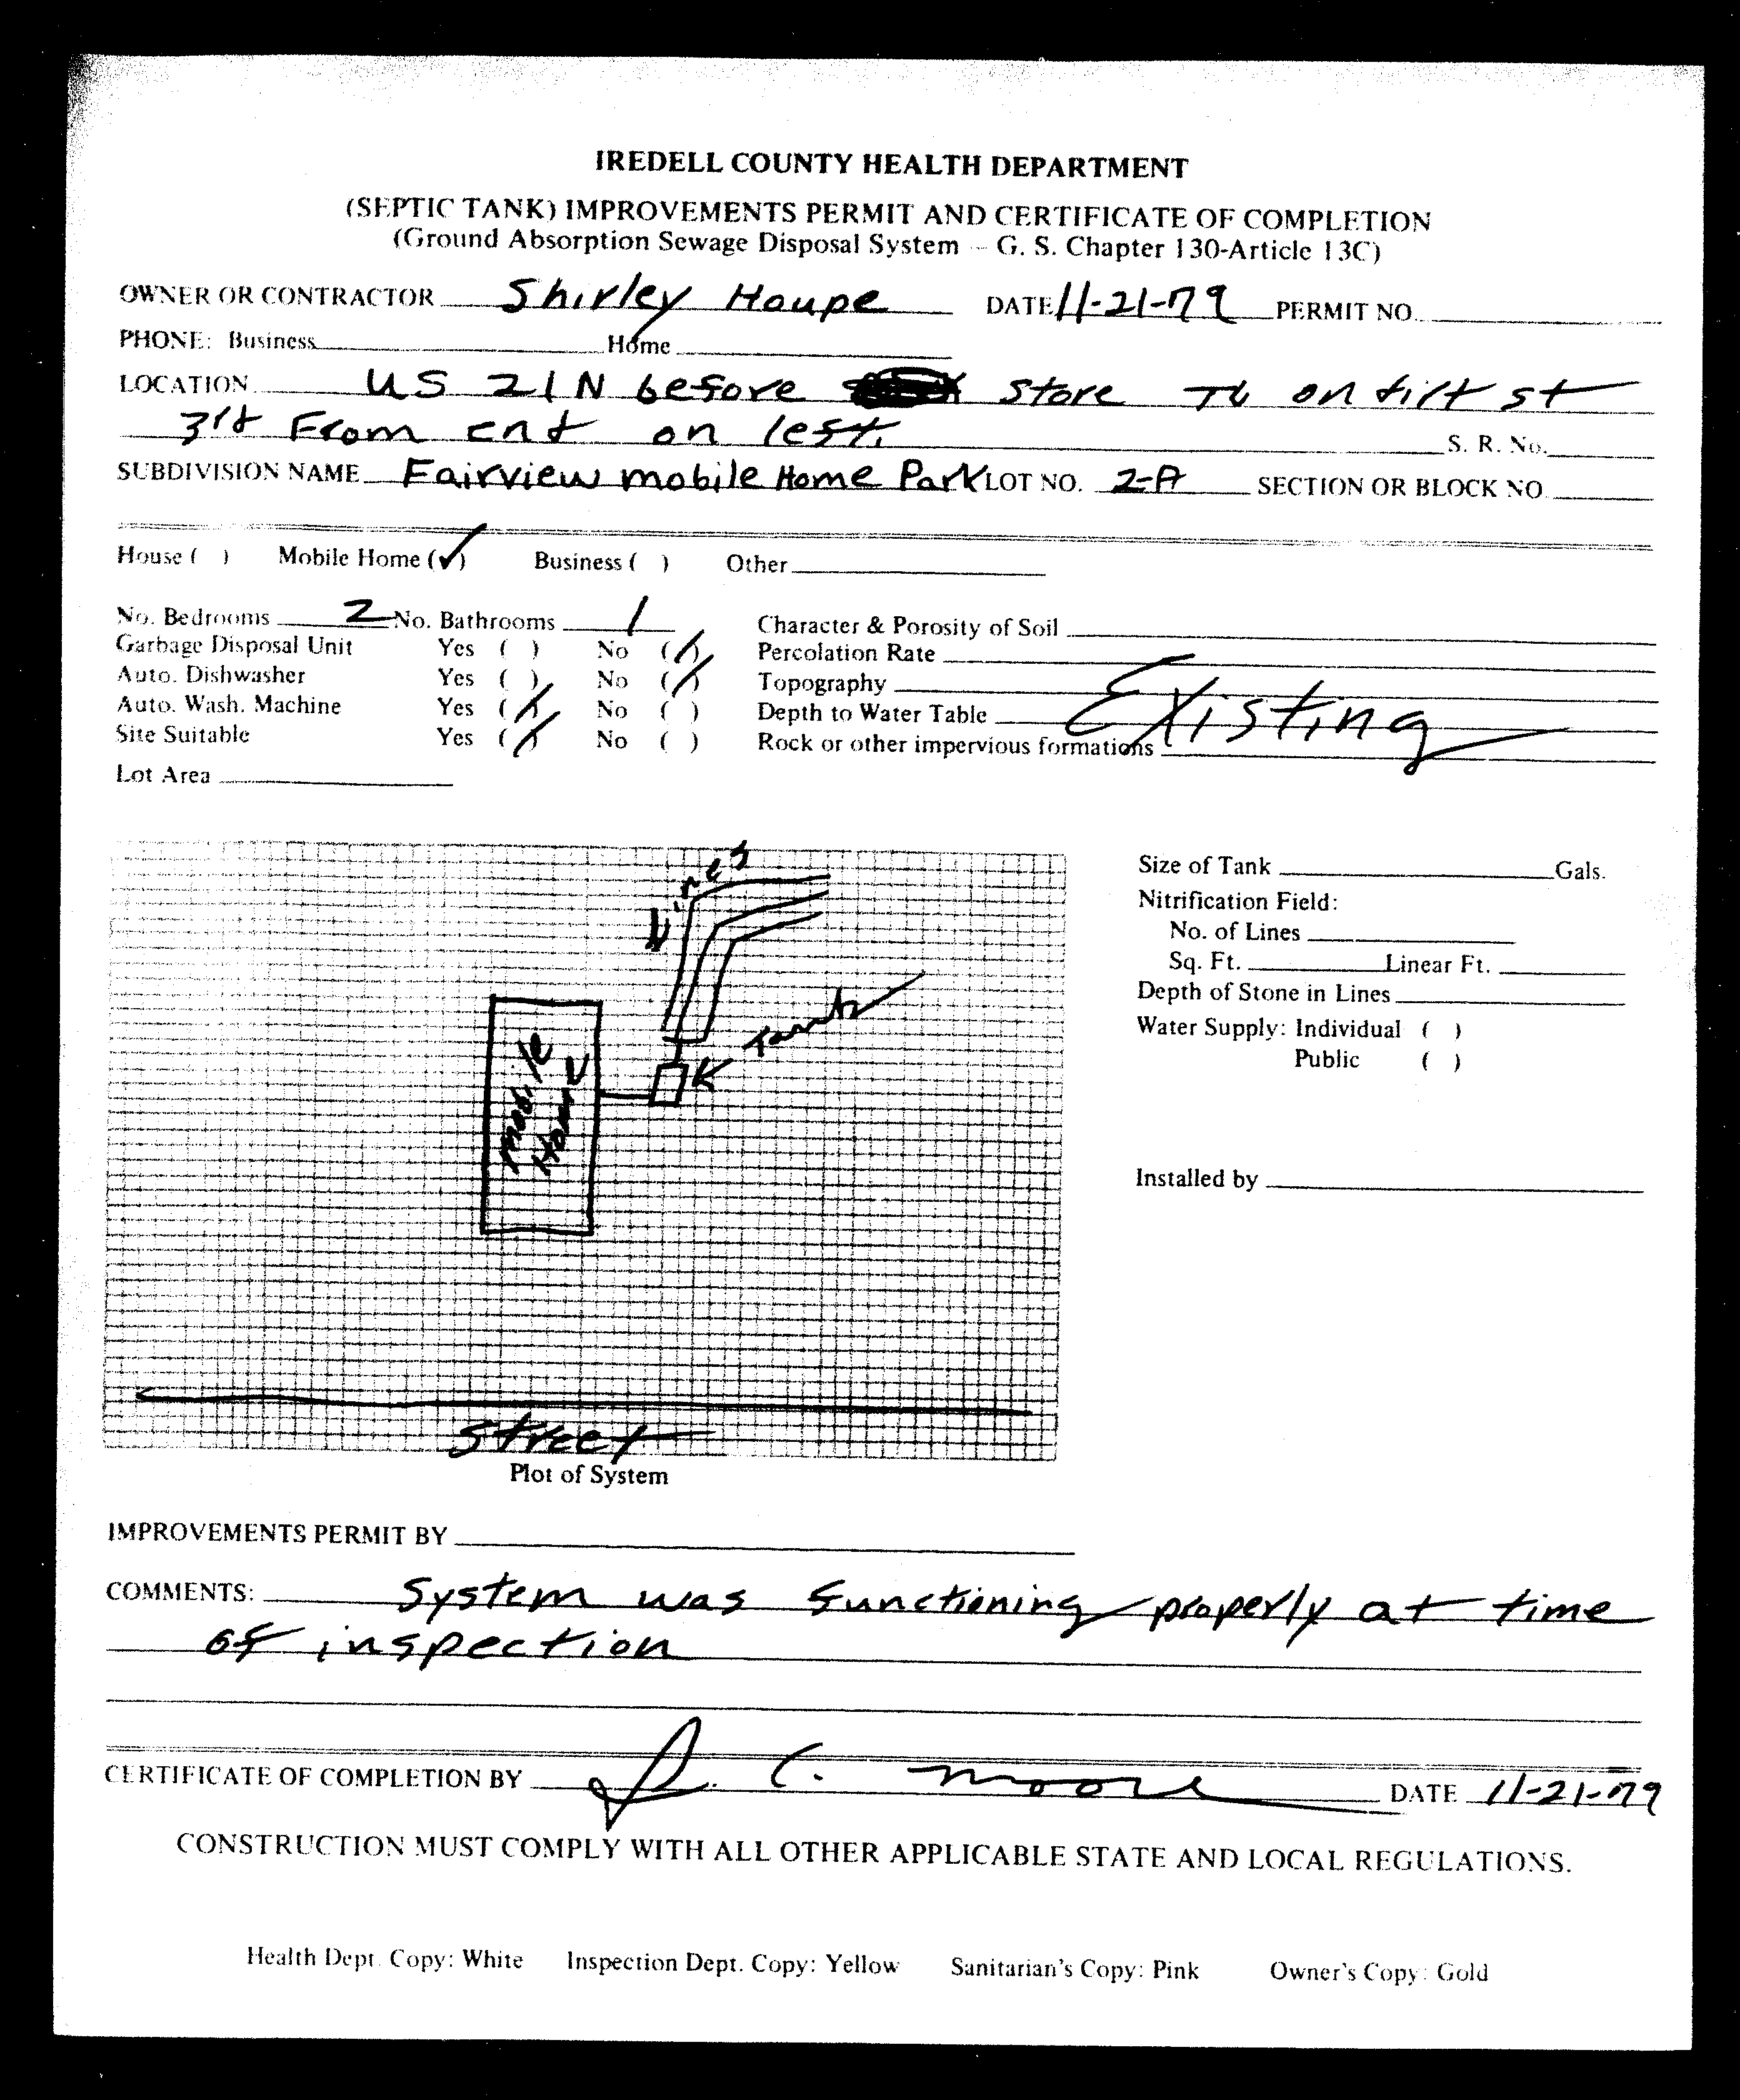 IREDELL COUNTY HEALTH DEPARTMENT
(SEPTIC TANK) IMPROVEMENTS PERMIT AND CERTIFICATE OF COMPLETION
(Ground Absorption Sewage Disposal System - G. S. Chapter 130-Article 13C)
OWNER OR CONTRACTOR Shirley Houpe DATE 11-21-79 PERMIT NO.
PHONE: Business Home
LOCATION US 21N before store TL on dirt st
3rd From end on left.
S. R. No.
SUBDIVISION NAME Fairview mobile Home Park LOT NO. 2-A SECTION OR BLOCK NO.
House ( ) Mobile Home (✓) Business ( ) Other
No. Bedrooms 2 No. Bathrooms 1 Character & Porosity of Soil
Garbage Disposal Unit Yes ( ) No (/) Percolation Rate
Auto. Dishwasher Yes ( ) No (/) Topography
Auto. Wash. Machine Yes (/) No ( ) Depth to Water Table Existing
Site Suitable Yes (/) No ( ) Rock or other impervious formations
Lot Area
Lines
Tank
Mobile
Home
Street
Plot of System
Size of Tank Gals.
Nitrification Field:
No. of Lines
Sq. Ft. Linear Ft.
Depth of Stone in Lines
Water Supply: Individual ( )
Public ( )
Installed by
IMPROVEMENTS PERMIT BY
COMMENTS: System was functioning properly at time
of inspection
CERTIFICATE OF COMPLETION BY C. Moore DATE 11-21-79
CONSTRUCTION MUST COMPLY WITH ALL OTHER APPLICABLE STATE AND LOCAL REGULATIONS.
Health Dept. Copy: White Inspection Dept. Copy: Yellow Sanitarian's Copy: Pink Owner's Copy: Gold